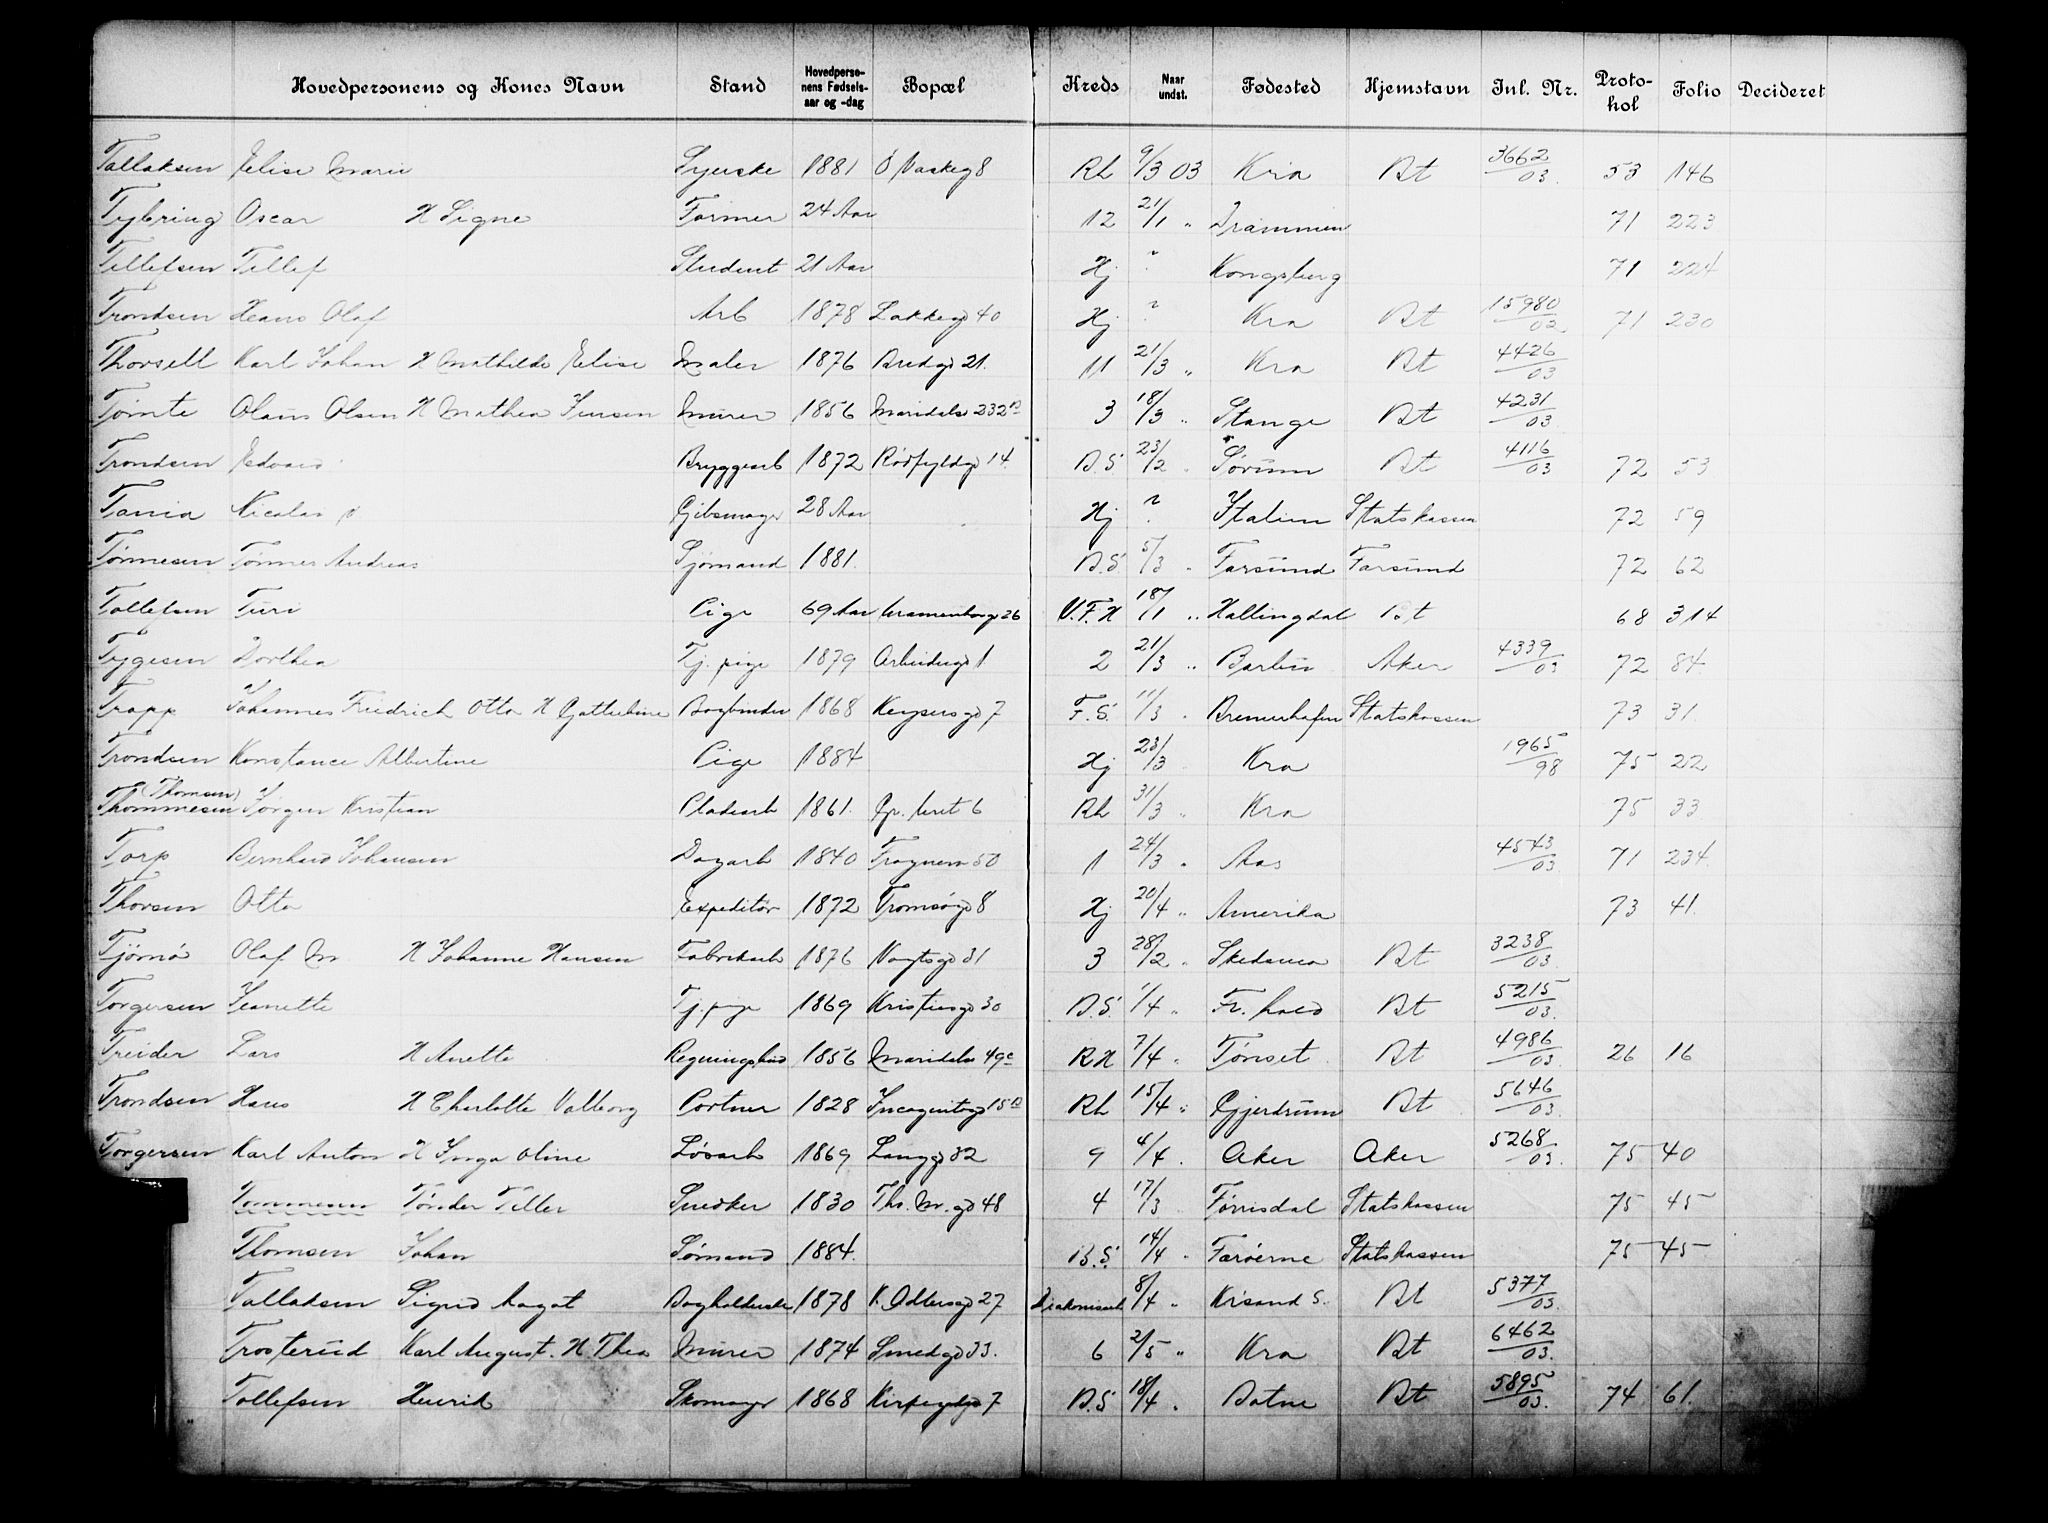 Hovedpersonens og Kones Navn Stand Hovedperso-nens Fødsels-aar og -dag Bopæl Kreds Naar undst. Fødested Hjemstavn Inl. Nr. Proto-kol Folio Decideret
Tallaksen Elise Marie Syerske 1881 Ö Vaskeg 8 Rh 9/3 03 Kria Bt 3662/03. 53 146
Tybring Oscar H Signe Former 24 Aar 12 21/1 " Drammen 71 223
Tellefsen Tellef Student 21 Aar Hj ? Kongsberg 71 224
Trondsen Hans Olaf Arb 1878 Lakkegd 40 Hj ? Kra Bt 15980/02 71 230
Thorsell Karl Johan H Mathilde Elise Maler 1876 Bredgd 21. 11 21/3 " Kra Bt 4426/03
Tømte Olaus Olsen H Mathea Jensen Murer 1856 Maridalsv 232 B 3 18/3 " Stange Bt 4231/03
Trondsen Edvard Bryggearb 1872 Rödfyldgd 14. B.S. 23/2 " Sørum Bt 4116/03 72 53
Tania Nicolai Gibsmager 28 Aar Hj ? Italien Statskassen 72 59
Tønnesen Tønnes Andreas Sjömand 1881. B.S. 5/3 " Farsund Farsund 72 62
Tollefsen Turi Pige 69 Aar 36 V.F.H 18/1 " Hallingdal Bt 68 314
Tygesen Dorthea Tj. pige 1879 Arbeidergd 1 2 21/3 " Barbu Aker 4339/03 72 84.
Trapp Johannes Friedrich Otto H Bogbinder 1868 Keysersgd 7 F.S. 11/3 " Bremerhafen Statskassen 73 31.
Trondsen Konstance Albertine Pige 1884 Hj 23/3 Kra 1965/98 75 22
(Thomsen)
Thommesen Jörgen Kristian Pladearb 1861. 6 Rh 31/3 " Kra 75 33
Torp Bernhard Johansen Dagarb 1840 Frognerv 50 1 24/3 " Aas 4543/03. 71 234.
Thorsen Otto Expeditör 1872 Tromsögd 8 Hj 20/4 " Amerika 73 41.
Tjörnö Olaf M. H Johanne Hansen Fabrikarb 1876 Vogtsgd 31 3 28/2 " Skedsmo Bt 3238/03.
Torgersen Jeanette Tj. pige 1869 Kristiesgd 30 B.S. 1/4 " Fr. hald Bt 5215/03.
Treider Lars H Anette Regningsbud 1856 Maridalsv 49 c RH 7/4 " Tönset Bt 4986/03. 26 16
Trondsen Hans H Charlotte Valborg Portner 1828 Incognitogd 15 B Rh 15/4 " Gjerdrum Bt 5646/03.
Torgersen Karl Anton H Inga Oline Løsarb 1869 Langgd 32 9 4/4 " Aker Aker 5268/03. 75 40
Tommesen Tønder Teller Snedker 1830 Th. M. gd 48 4 17/3 Statskassen 75 45
Thomsen Johan Sømand 1884. B.S. 14/4 " Færøerne Statskassen 75 45
Tallaksen Sigrid Aagot Bogholderske 1878 K. Adlersgd 27 8/4 " Krisand S. Bt 5377/03.
Trosterud Karl August. H. Thea Murer 1874 Smedgd 33. 6 2/5 " Kra Bt 6462/03.
Tollefsen Henrik Skomager 1868 7 B.S 18/4 " Botne Bt 5895/03. 74 61.